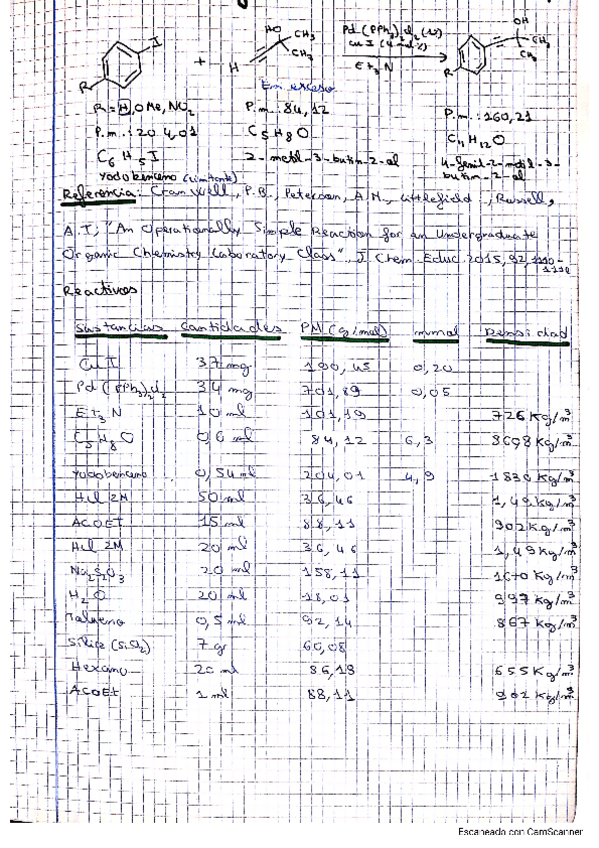 I HO CH3 Pd(PPh3)2Cl2 (1%) OH
CH3 CuI (4 mol%) CH3
R + H Et3N R CH3
En exceso
R = H, OMe, NO2 P.m.: 84,12 P.m.: 160,21
P.m.: 204,01 C5H8O C11H12O
C6H5I 2-metil-3-butin-2-ol 4-fenil-2-metil-3-
Yodobenceno (Limitante) butin-2-ol
Referencia: Cranwell, P.B., Peterson, A.M., Littlefield, Russell,
A.T, "An Operationally Simple Reaction for an Undergraduate
Organic Chemistry Laboratory Class", J. Chem. Educ. 2015, 92, 1110-
1118
Reactivos
Sustancias Cantidades PM (g/mol) mmol Densidad
CuI 37 mg 190,45 0,20
Pd(PPh3)2Cl2 34 mg 701,89 0,05
Et3N 10 ml 101,19 726 Kg/m3
C5H8O 0,6 ml 84,12 6,3 Kg/m3
Yodobenceno 0,54 ml 204,01 4,9 1830 Kg/m3
HCl 2M 50 ml 36,46 1,49 Kg/m3
ACOEt 15 ml 88,11 902 Kg/m3
HCl 2M 20 ml 36,46 1,49 Kg/m3
Na2S2O3 20 ml 158,11 1670 Kg/m3
H2O 20 ml 18,01 997 Kg/m3
Tolueno 0,5 ml 92,14 867 Kg/m3
Sílice (SiO2) 7 gr 60,08
Hexano 20 ml 86,18 655 Kg/m3
ACOEt 1 ml 88,11 902 Kg/m3
Escaneado con CamScanner